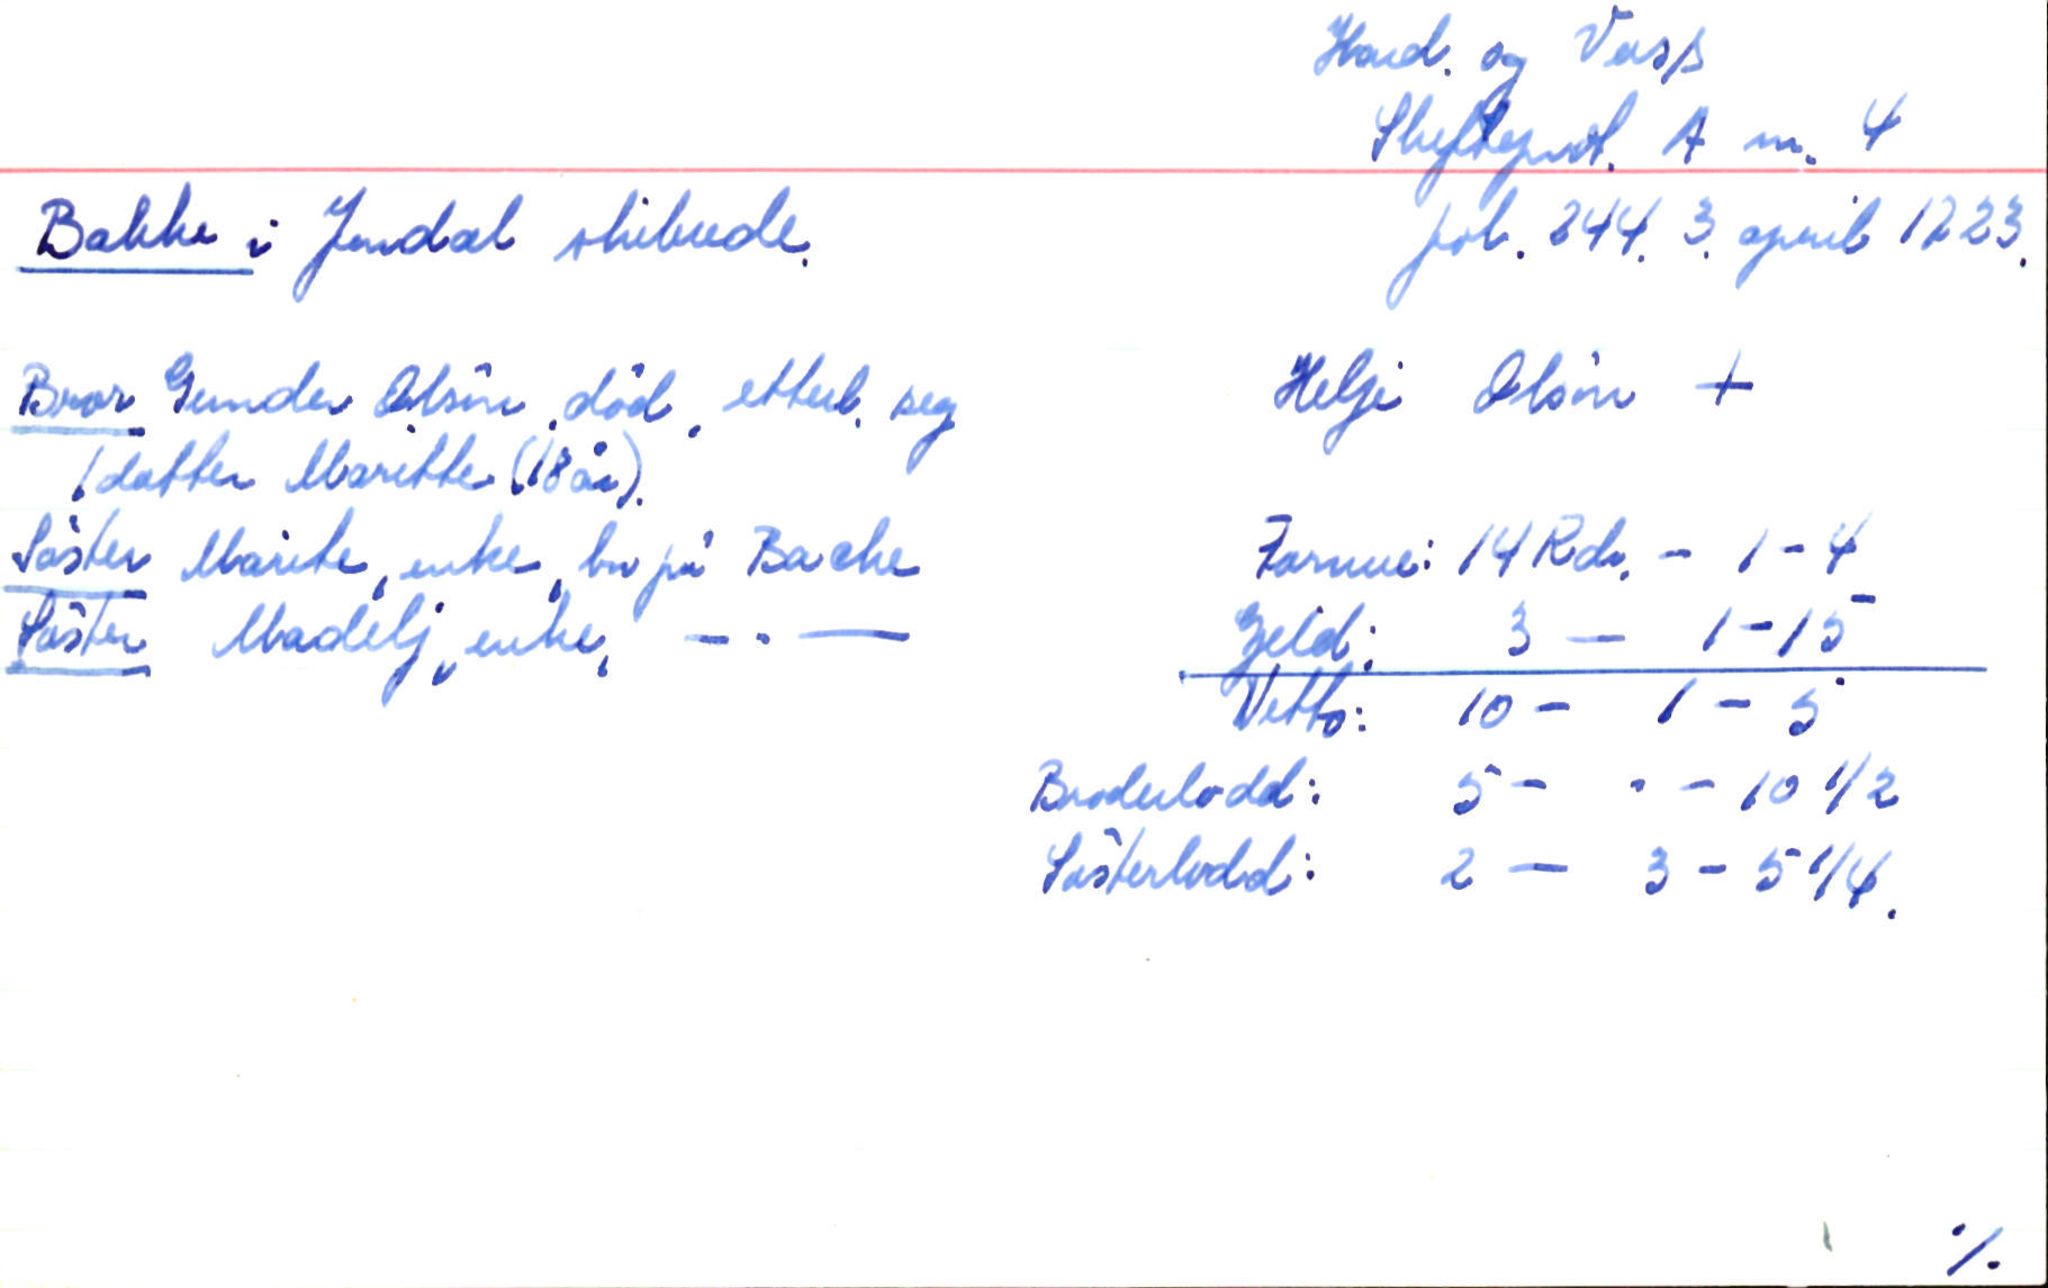 Hard. og Voss
Skifteprot. A nr. 4
Bakke i Jondal skibrede. fol. 244. 3. april 1723.
Bror Gunder Olsön, död, etterl. seg Helje Olsön +
1 datter Maritte (18 år).
Söster Marite, enke, bu på Bache Formue: 14 Rdr. - 1 - 4
Söster Madelj, enke, - " - Gjeld: 3 - 1 - 15
Netto: 10 - 1 - 5
Broderlodd: 5 - . - 10 1/2
Sösterlodd: 2 - 3 - 5 1/4.
./.